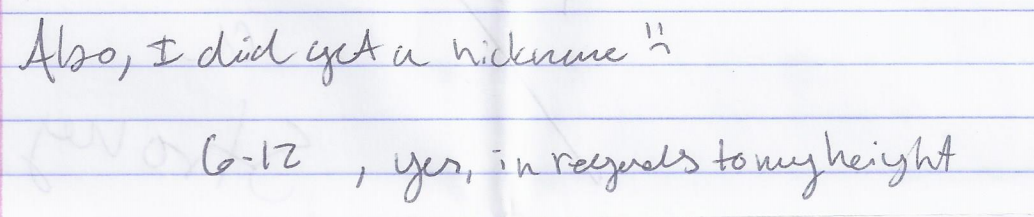 Also, I did get a nickname ¨⌢
6-12 , yes, in regards to my height